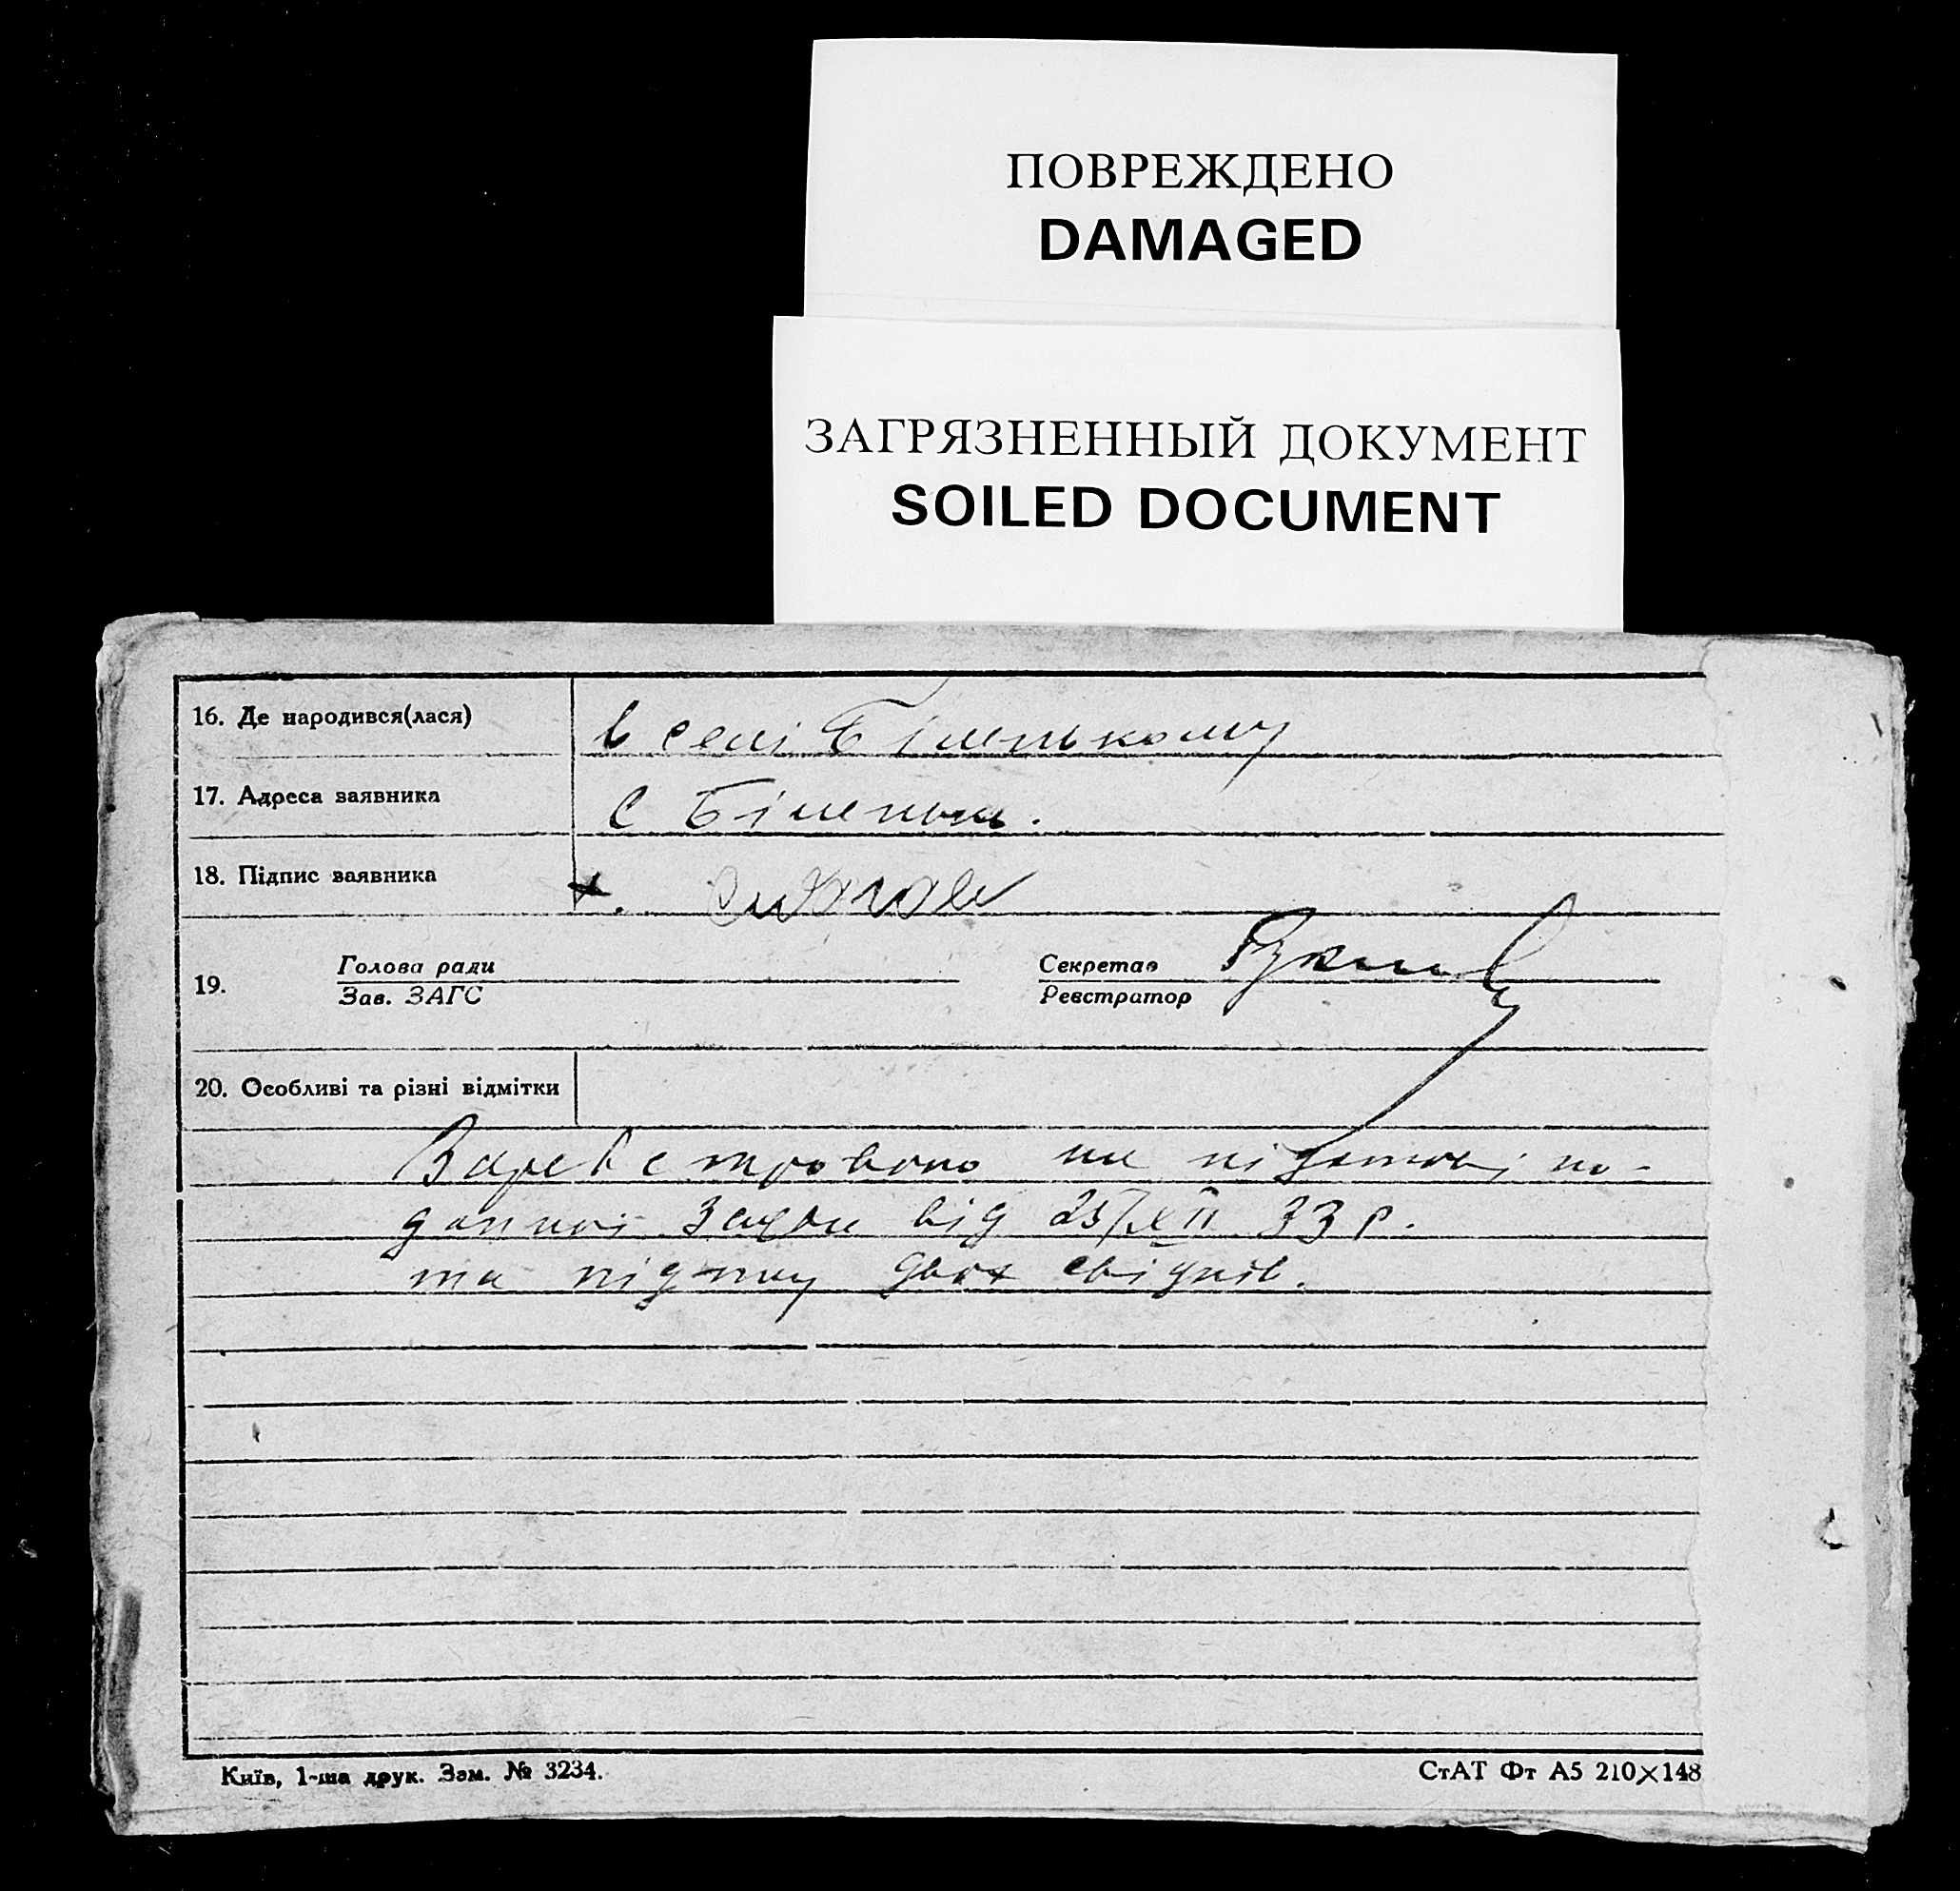 ПОВРЕЖДЕНО
DAMAGED
ЗАГРЯЗНЕННЫЙ ДОКУМЕНТ
SOILED DOCUMENT
16. Де народився(лася) в селі Біленькому
17. Адреса заявника с Біленьке.
18. Підпис заявника
19. Голова ради Секретар
Зав. ЗАГС Реєстратор
20. Особливі та різні відмітки
Зареєстровано на підставі по-
данної заяви від 25/XII 33 р.
та підпису двох свідків.
Київ, 1-ша друк. Зам. № 3234.
СтАТ Фт А5 210×148